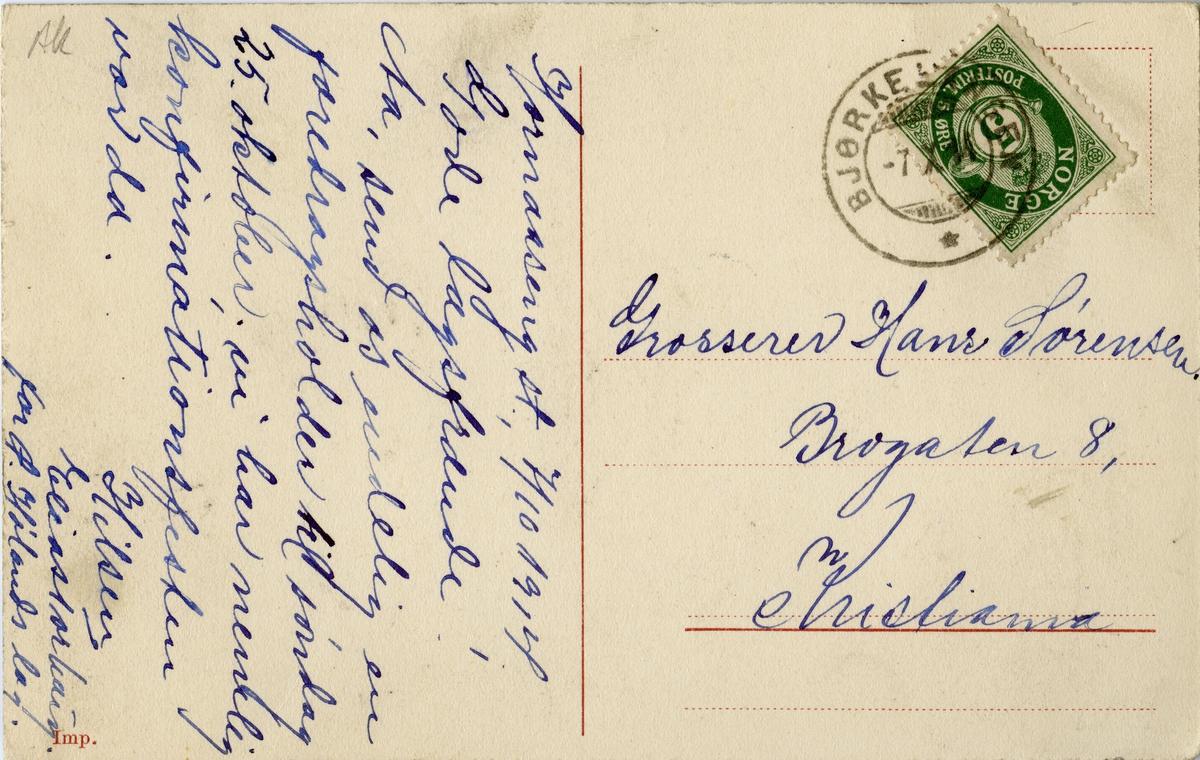 AK
st. 7/10 1914
Gode lagsfrende!
Aa, send os endelig en
foredragsholder till söndag
25. oktober. vi har nemlig
konfirmationsfesten
vor da.
Hilsen
Imp.
BJØRKE
-7. X
NORGE
POSTFRIM. 5 ØRE
5
Grosserer Hans Sørensen.
Brogaten 8,
Kristiania